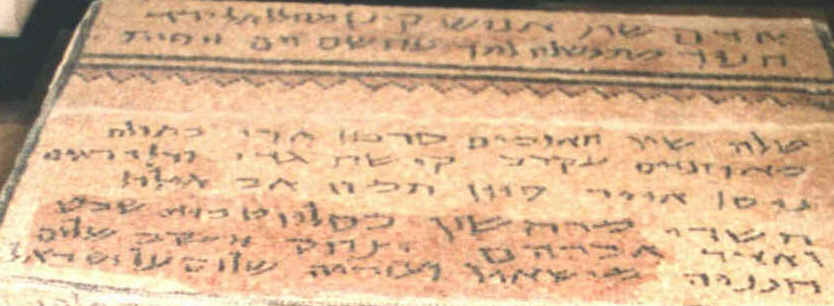 אדם שת אנוש קינן מהללאל ירד
חנוך מתושלח למך נוח שם חם ויפת
טלה שור תאומים סרטן ארי בתולה
מאוזניים עקרב קשת גדי ודלי דגים
ניסן אייר סיוון תמוז אב אילול
תשרי מרחשוון כסליו טבית שבט
ואדר אברהם יצחק יעקב שלום
חנניה מישאיל ועזריה שלום על ישראל